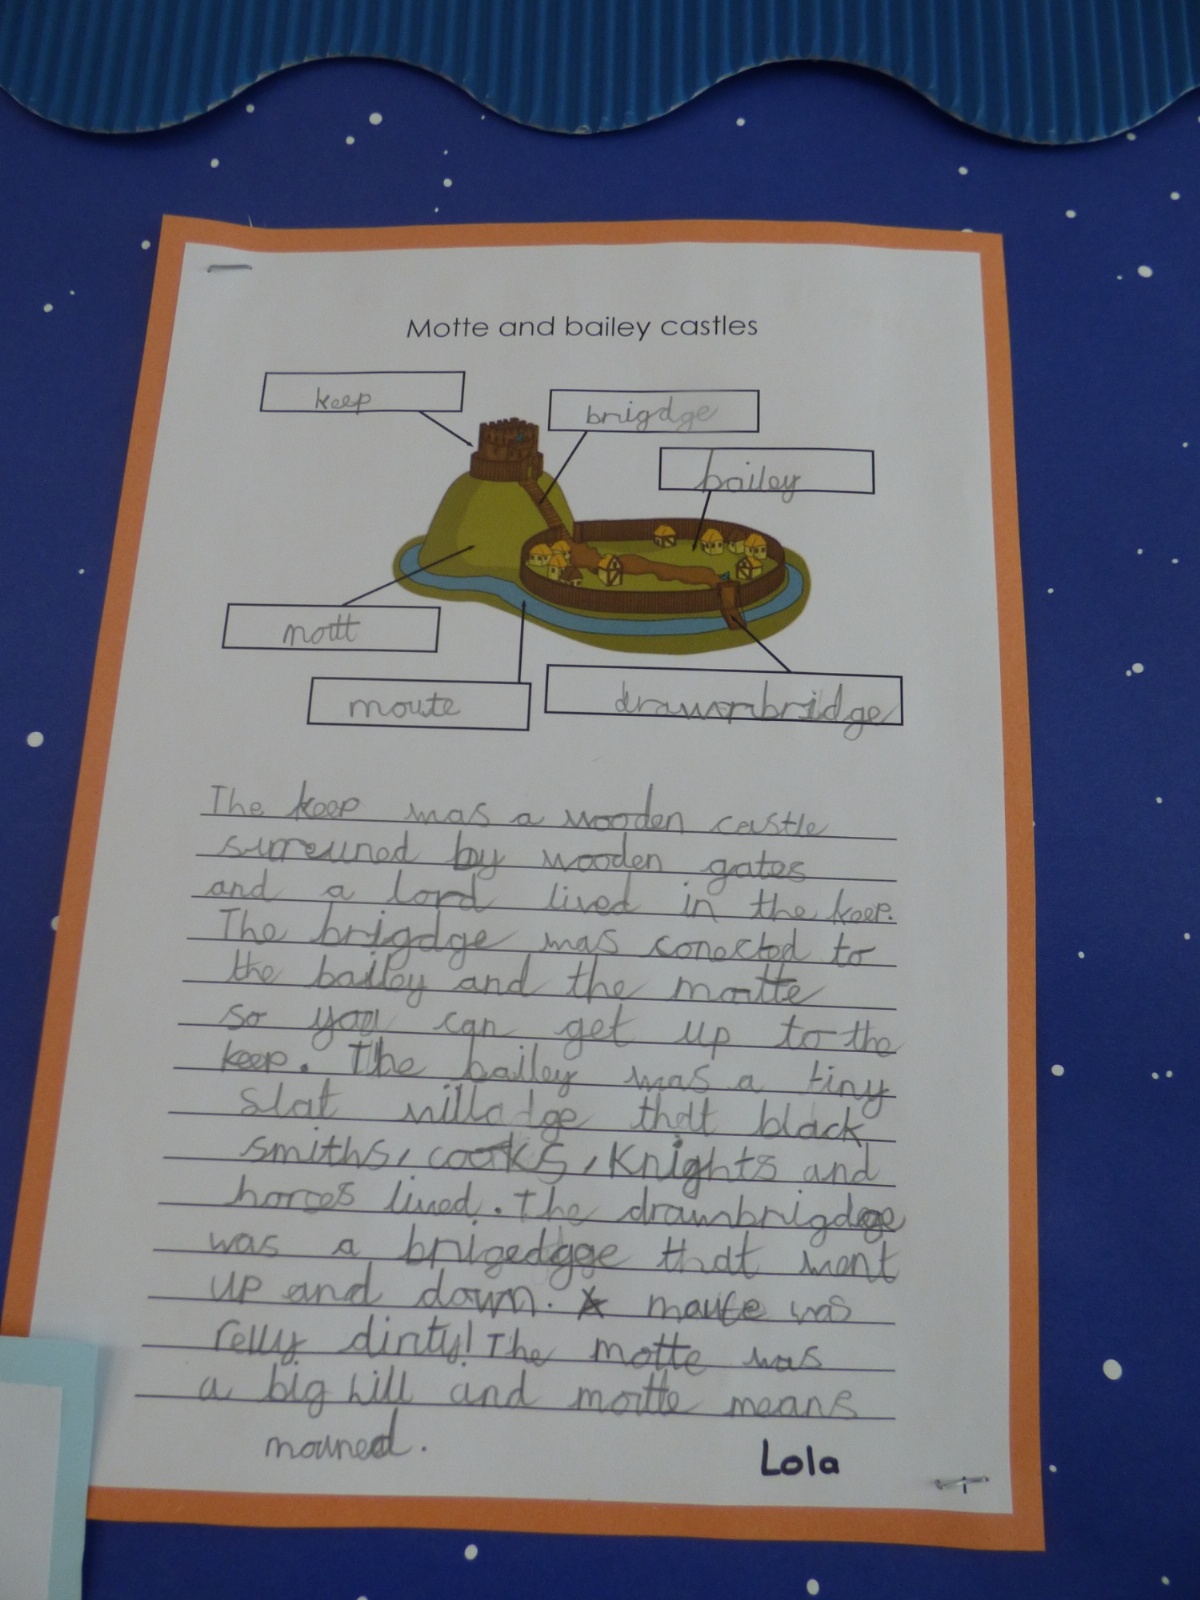 Motte and bailey castles
keep
brigdge
bailey
mott
moute
drawnbridge
The keep was a wooden castle
surreuned by wooden gates
and a lord lived in the keep.
The brigdge was conected to
the bailey and the motte
so you can get up to the
keep. The bailey was a tiny
slat villadge that black
smiths, cooks, Knights and
horces lived. The drawnbrigdge
was a brigedgge that went
up and down. moute was
relly dirty! The motte was
a big hill and motte means
mouned.
Lola